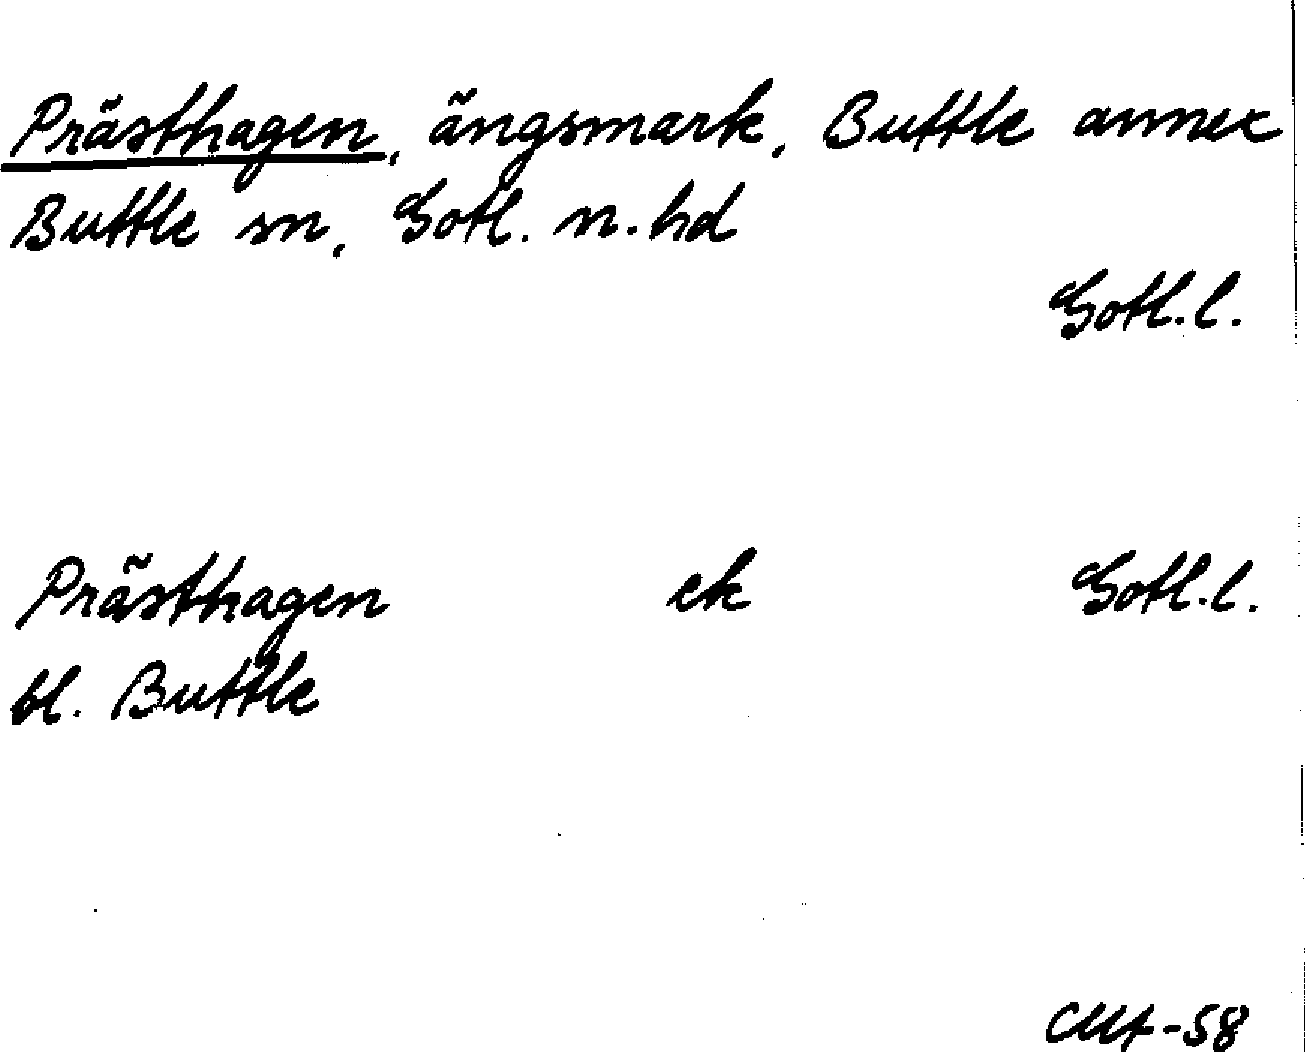 Prästhagen, ängsmark, Buttle annex
Buttle sn, Gotl. n. hd
Gotl. l.
Prästhagen ek Gotl. l.
bl. Buttle
-58